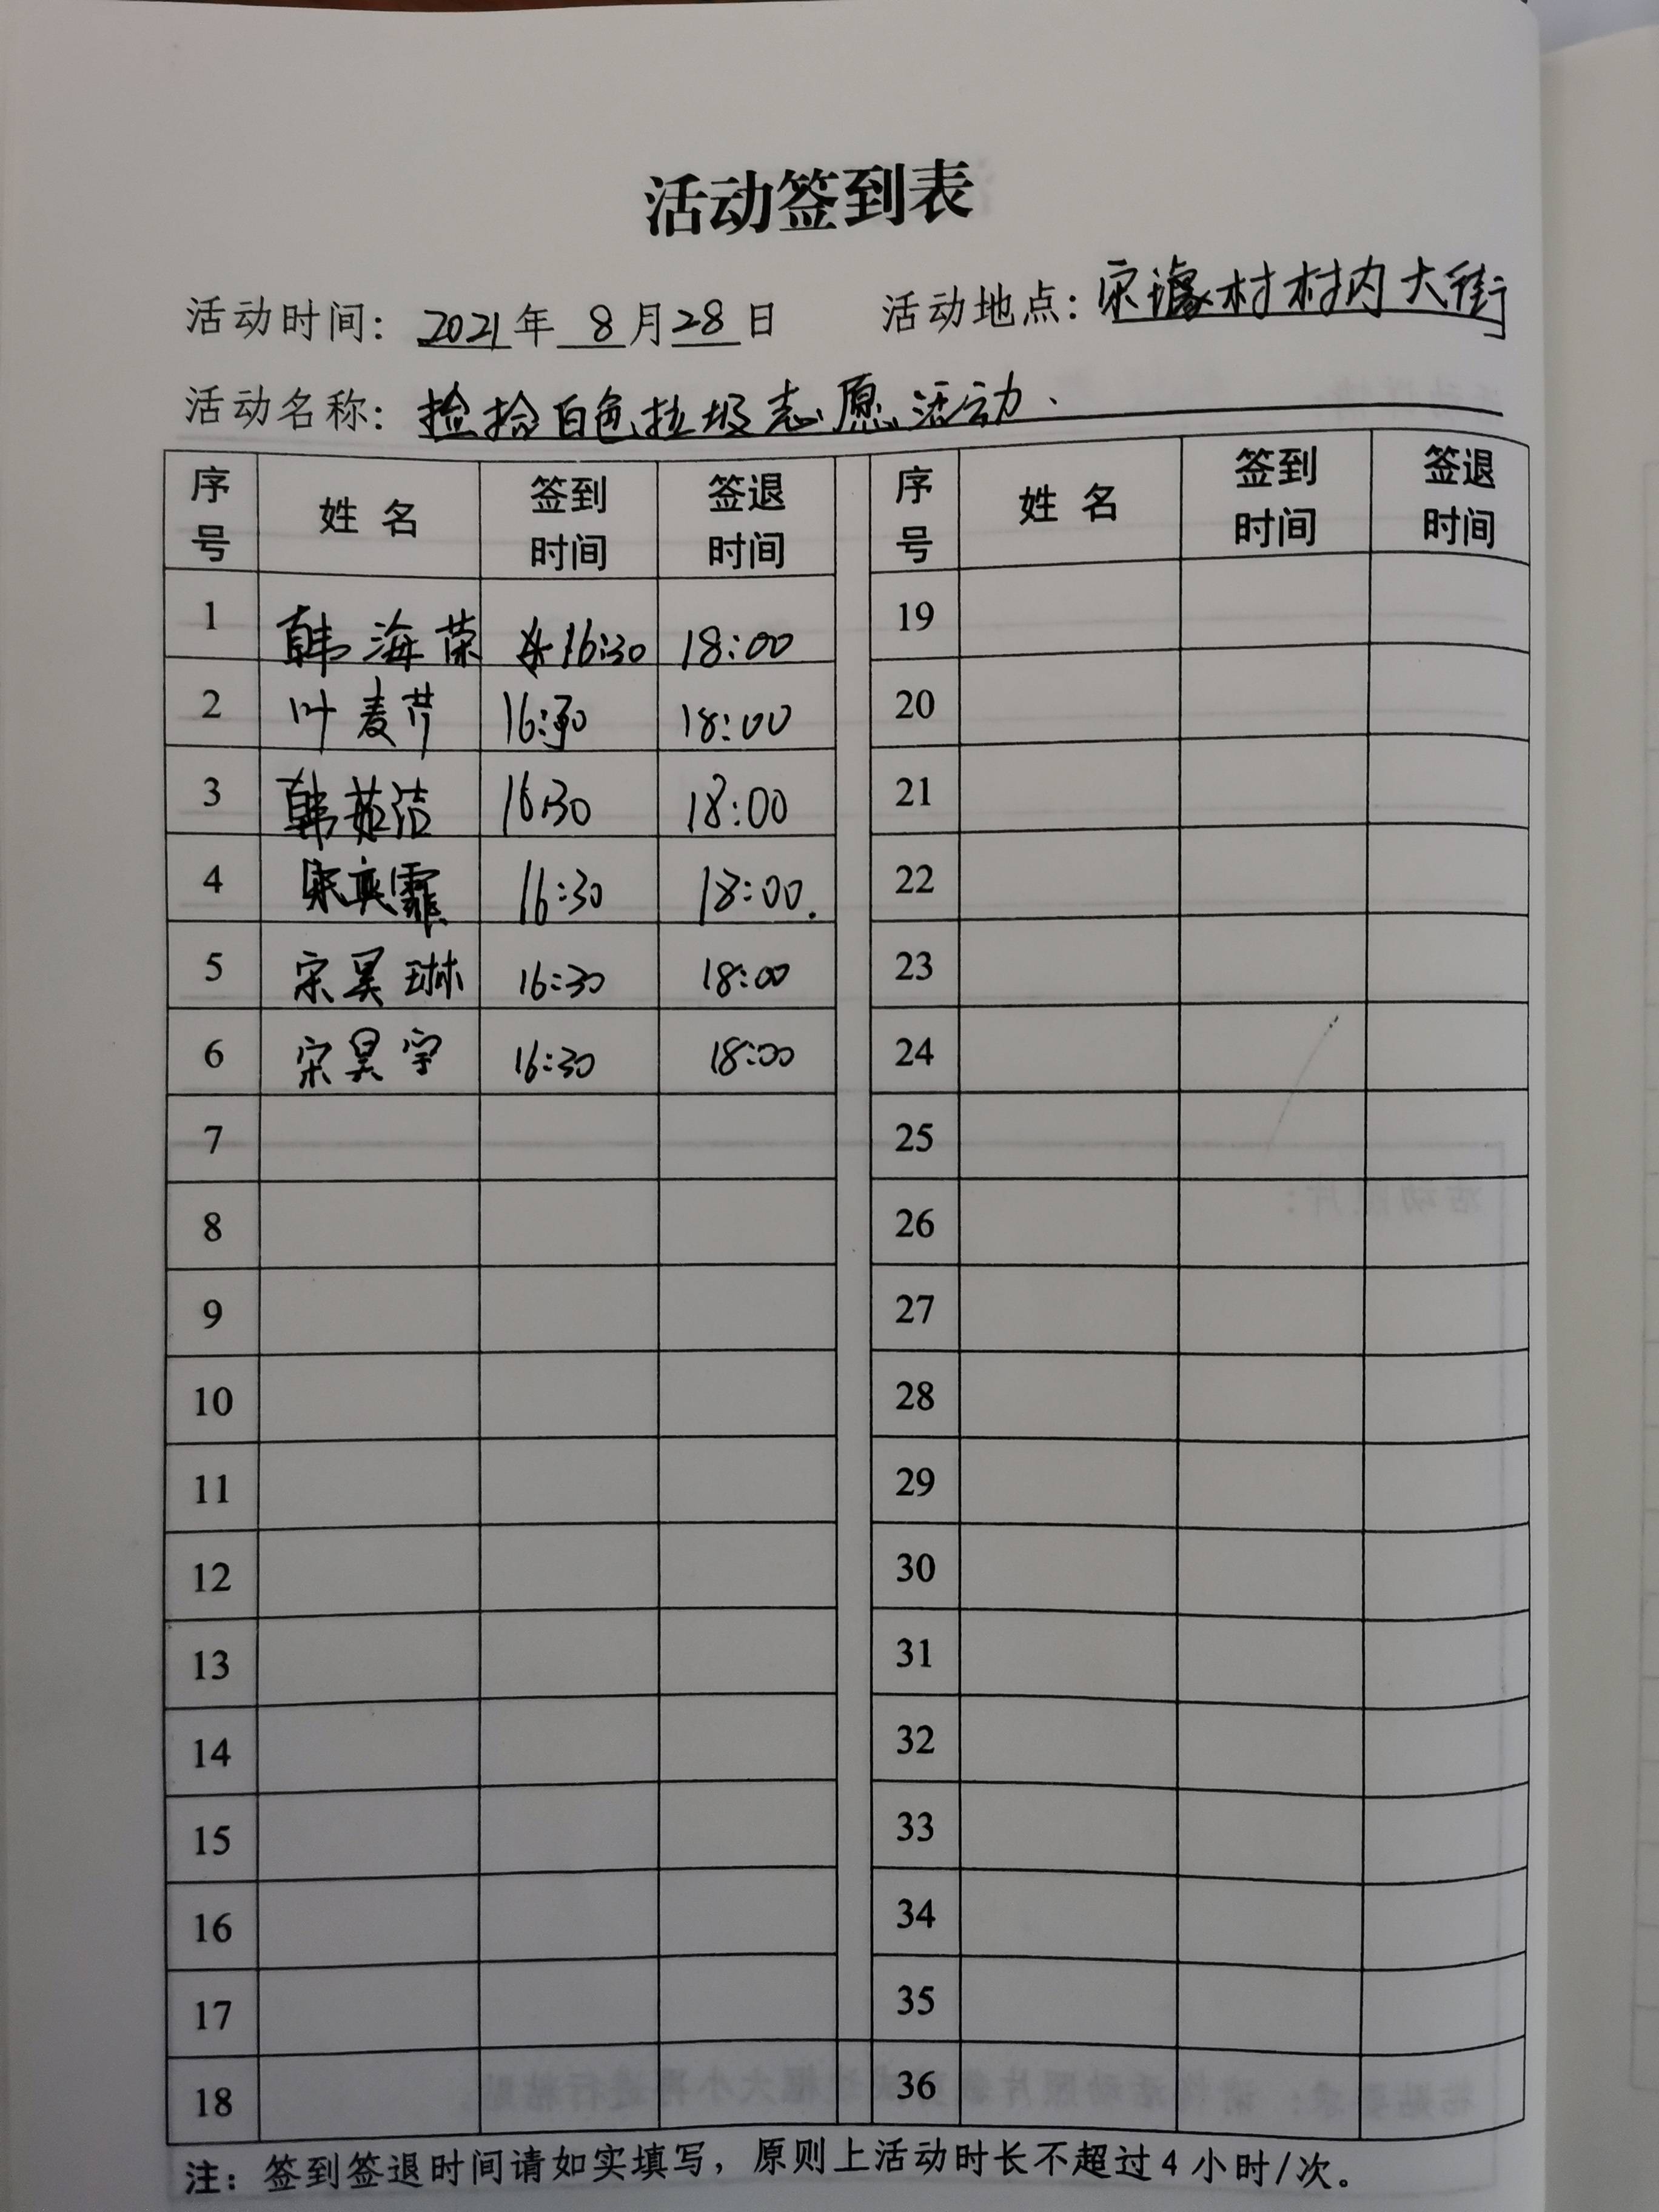 活动签到表
活动时间：2021年 8月28日 活动地点：宋 村村内大街
活动名称：捡拾白色垃圾志愿活动
序号 姓名 签到时间 签退时间 序号 姓名 签到时间 签退时间
1 韩海荣 16:30 18:00 19
2 叶麦芹 16:30 18:00 20
3 韩茹洁 16:30 18:00 21
4 宋英霏 16:30 18:00. 22
5 宋昊琳 16:30 18:00 23
6 宋昊宇 16:30 18:00 24
7 25
8 26
9 27
10 28
11 29
12 30
13 31
14 32
15 33
16 34
17 35
18 36
注：签到签退时间请如实填写，原则上活动时长不超过4小时/次。